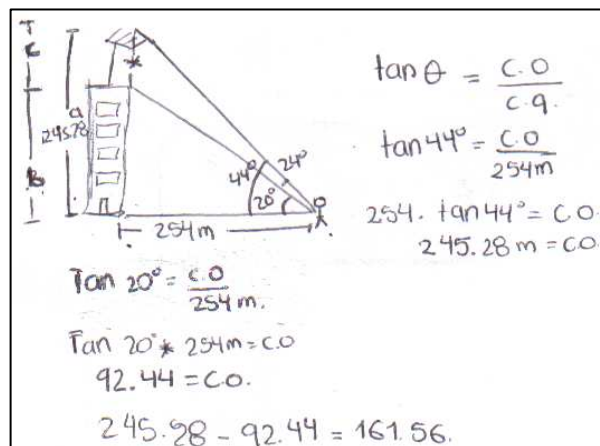 a
245.28
B
44°
24°
20°
254m
tan θ = C.O
c.a.
tan 44° = C.O
254m
254. tan 44° = C.O
245.28 m = C.O
Tan 20° = C.O
254 m.
Tan 20° * 254m = C.O
92.44 = C.O.
245.28 - 92.44 = 161.56.